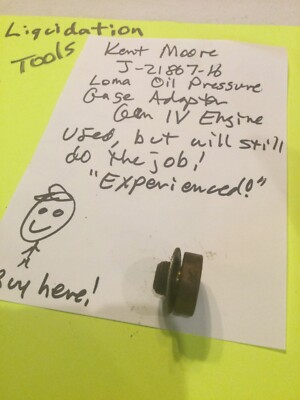 Liquidation
Tools
Kent Moore
J-21867-16
Loma Oil Pressure
Gage Adapter
Gen IV Engine
Used, but will still
do the job!
"Experienced!"
Buy here!